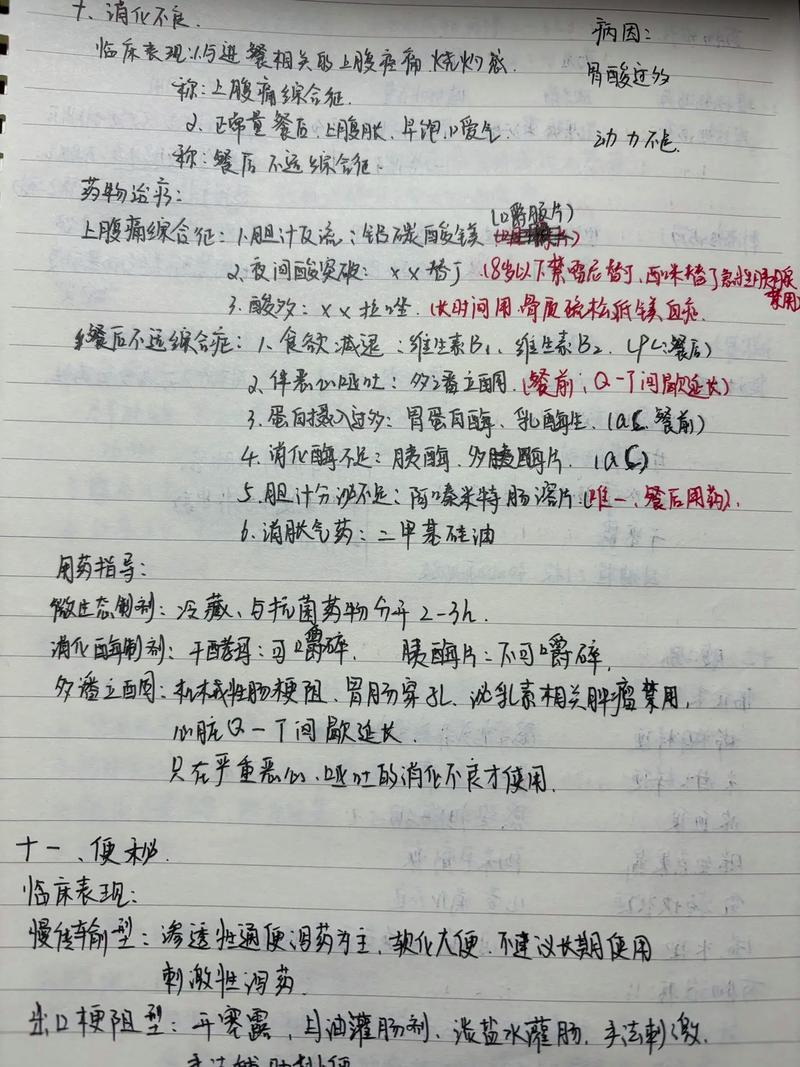 十、消化不良.
病因:
临床表现:1.与进餐相关的上腹疼痛.烧灼感.
胃酸过多
称:上腹痛综合征.
2. 正常量餐后、上腹胀、早饱、嗳气.
动力不足.
称:餐后不适综合征.
药物治疗:
上腹痛综合征:1.胆汁反流:铝碳酸镁(嚼服片)
2.夜间酸突破:××替丁(8岁以下禁雷尼替丁、西咪替丁急性胰腺炎禁用)
3.酸多:××拉唑.(长时间用.骨质疏松低镁血症.
餐后不适综合症:1、食欲减退:维生素B1、维生素B2.(PC:餐后)
2.伴恶心呕吐:多潘立酮.(餐前;Q-T间歇延长)
3.蛋白摄入过多:胃蛋白酶、乳酶生.(ac.餐前)
4.消化酶不足:胰酶.多胰酶片.(ac)
5.胆汁分泌不足:阿嗪米特肠溶片.(唯一、餐后用药).
6.消胀气药:二甲基硅油
用药指导:
微生态制剂:冷藏、与抗菌药物分开2-3h.
消化酶制剂:干酵母:可嚼碎. 胰酶片:不可嚼碎.
多潘立酮:机械性肠梗阻.胃肠穿孔、泌乳素相关肿瘤禁用,
心脏Q-T间歇延长.
只在严重恶心、呕吐的消化不良才使用.
十一、便秘.
临床表现:
慢传输型:渗透性通便泻药为主,软化大便.不建议长期使用
刺激性泻药.
出口梗阻型:开塞露,甘油灌肠剂、淡盐水灌肠.手法刺激.
手法辅助排便